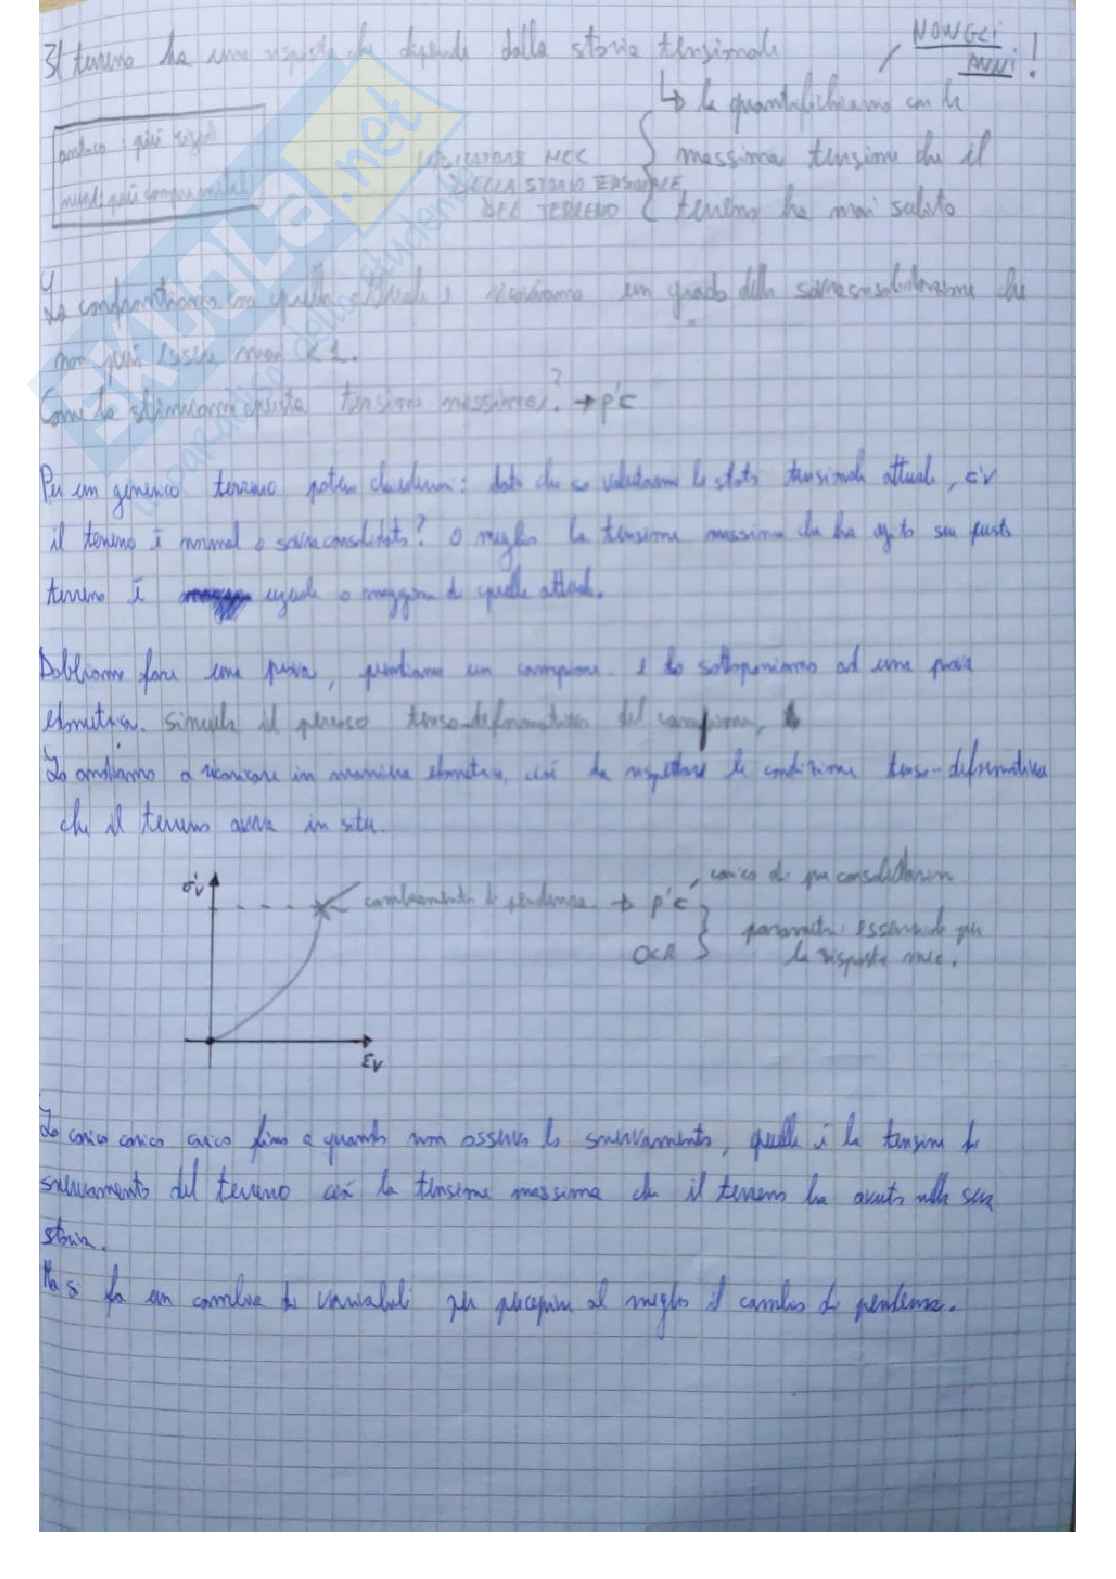 Il terreno ha una risposta che dipende dalla storia tensionale
NON GLI
ANNI!
↳ la quantifichiamo con la
massima tensione che il
terreno ha mai subito
DELLA STORIA TENSIONALE
DEL TERRENO
più rigido
Lo confrontiamo con quella attuale e un grado della sovraconsolidazione che
non può essere mai < 1.
Come la stimiamo questa tensione massima? → p'c
Per un generico terreno potrei chiedermi: dato che so valutarne lo stato tensionale attuale, σ'v
il terreno è normal o sovraconsolidato? O meglio la tensione massima che ha agito su questo
terreno è uguale o maggiore di quella attuale.
Dobbiamo fare una prova, prendiamo un campione e lo sottoponiamo ad una prova
edometrica. Simula il tenso-deformativo del campione,
Lo andiamo a ricaricare in maniera edometrica, così da rispettare le condizione tenso-deformativa
che il terreno aveva in situ.
σ'v
cambiamento di pendenza → p'c, carico di preconsolidazione
OCR
parametri essenziali per
la risposta mecc.
εv
Lo carico carico carico fino a quando non osservo lo snervamento, quella è la tensione di
snervamento del terreno cioè la tensione massima che il terreno ha avuto nella sua
storia.
Ma si fa un cambio di variabili per percepire al meglio il cambio di pendenza.
SKUOLA.net